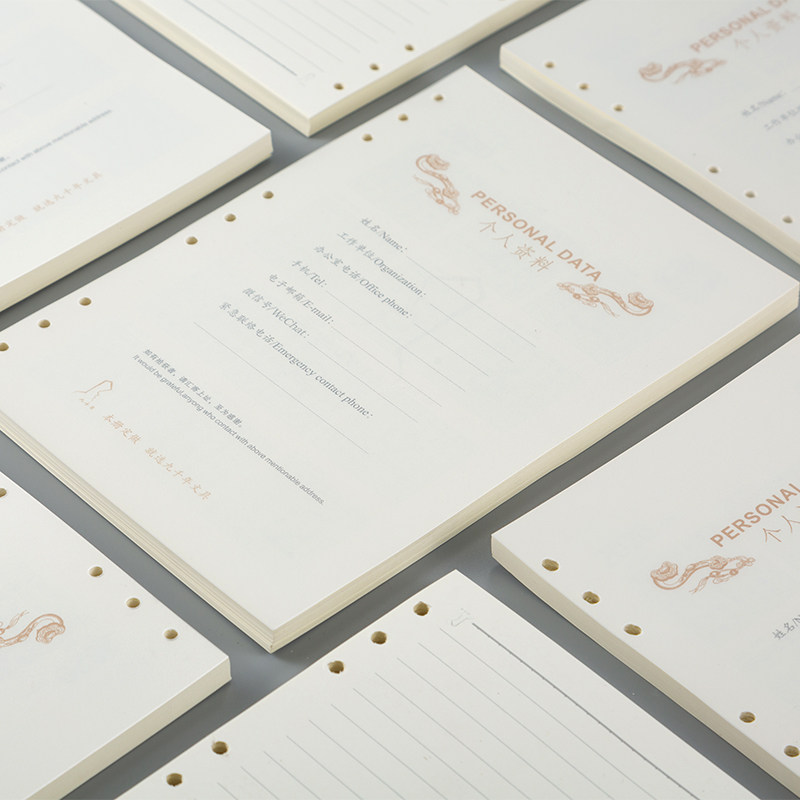 PERSONAL DATA
个人资料
姓名/Name:
工作单位/Organization:
办公室电话/Office phone:
手机/Tel:
电子邮箱/E-mail:
微信号/WeChat:
紧急联络电话/Emergency contact phone:
如有拾获者，请汇寄上址，至为感谢。
It would be grateful,anyong who contact with above mentionable address.
PERSONAL DA
个人资料
姓名/Name:
工作单位
contact with above mentionable address.
PERSONAL
个人资
姓名/N